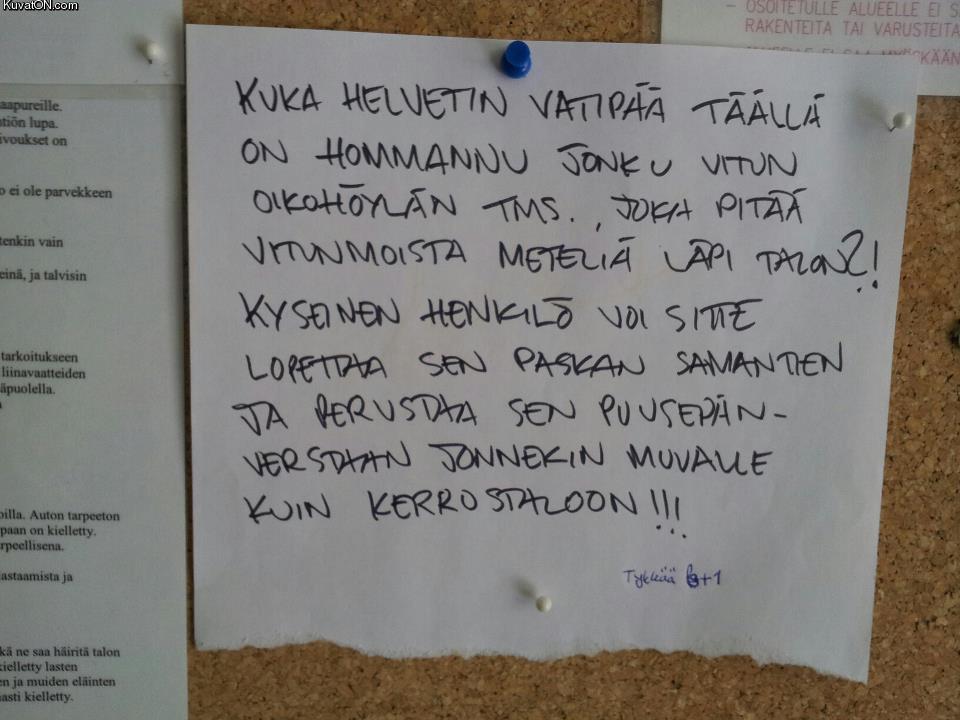 KuvatON.com
OSOITETULLE ALUEELLE EI S
RAKENTEITA TAI VARUSTEITA
KUKA HELVETIN VATIPÄÄ TÄÄLLÄ
ON HOMMANNU JONKU VITUN
OIKOHÖYLÄN TMS., JOKA PITÄÄ
VITUNMOISTA METELIÄ LÄPI TALON?!
KYSEINEN HENKILÖ VOI SITTE
LOPETTAA SEN PASKAN SAMANTIEN
JA PERUSTAA SEN PUUSEPÄN-
VERSTAAN JONNEKIN MUVALLE
KUIN KERROSTALOON!!!
Tykkää +1
aapureille.
tiön lupa.
ivoukset on
o ei ole parvekkeen
tenkin vain
einä, ja talvisin
tarkoitukseen
liinavaatteiden
äpuolella.
oilla. Auton tarpeeton
paan on kielletty.
rpeellisena.
astaamista ja
kä ne saa häiritä talon
kielletty lasten
en ja muiden eläinten
asti kielletty.